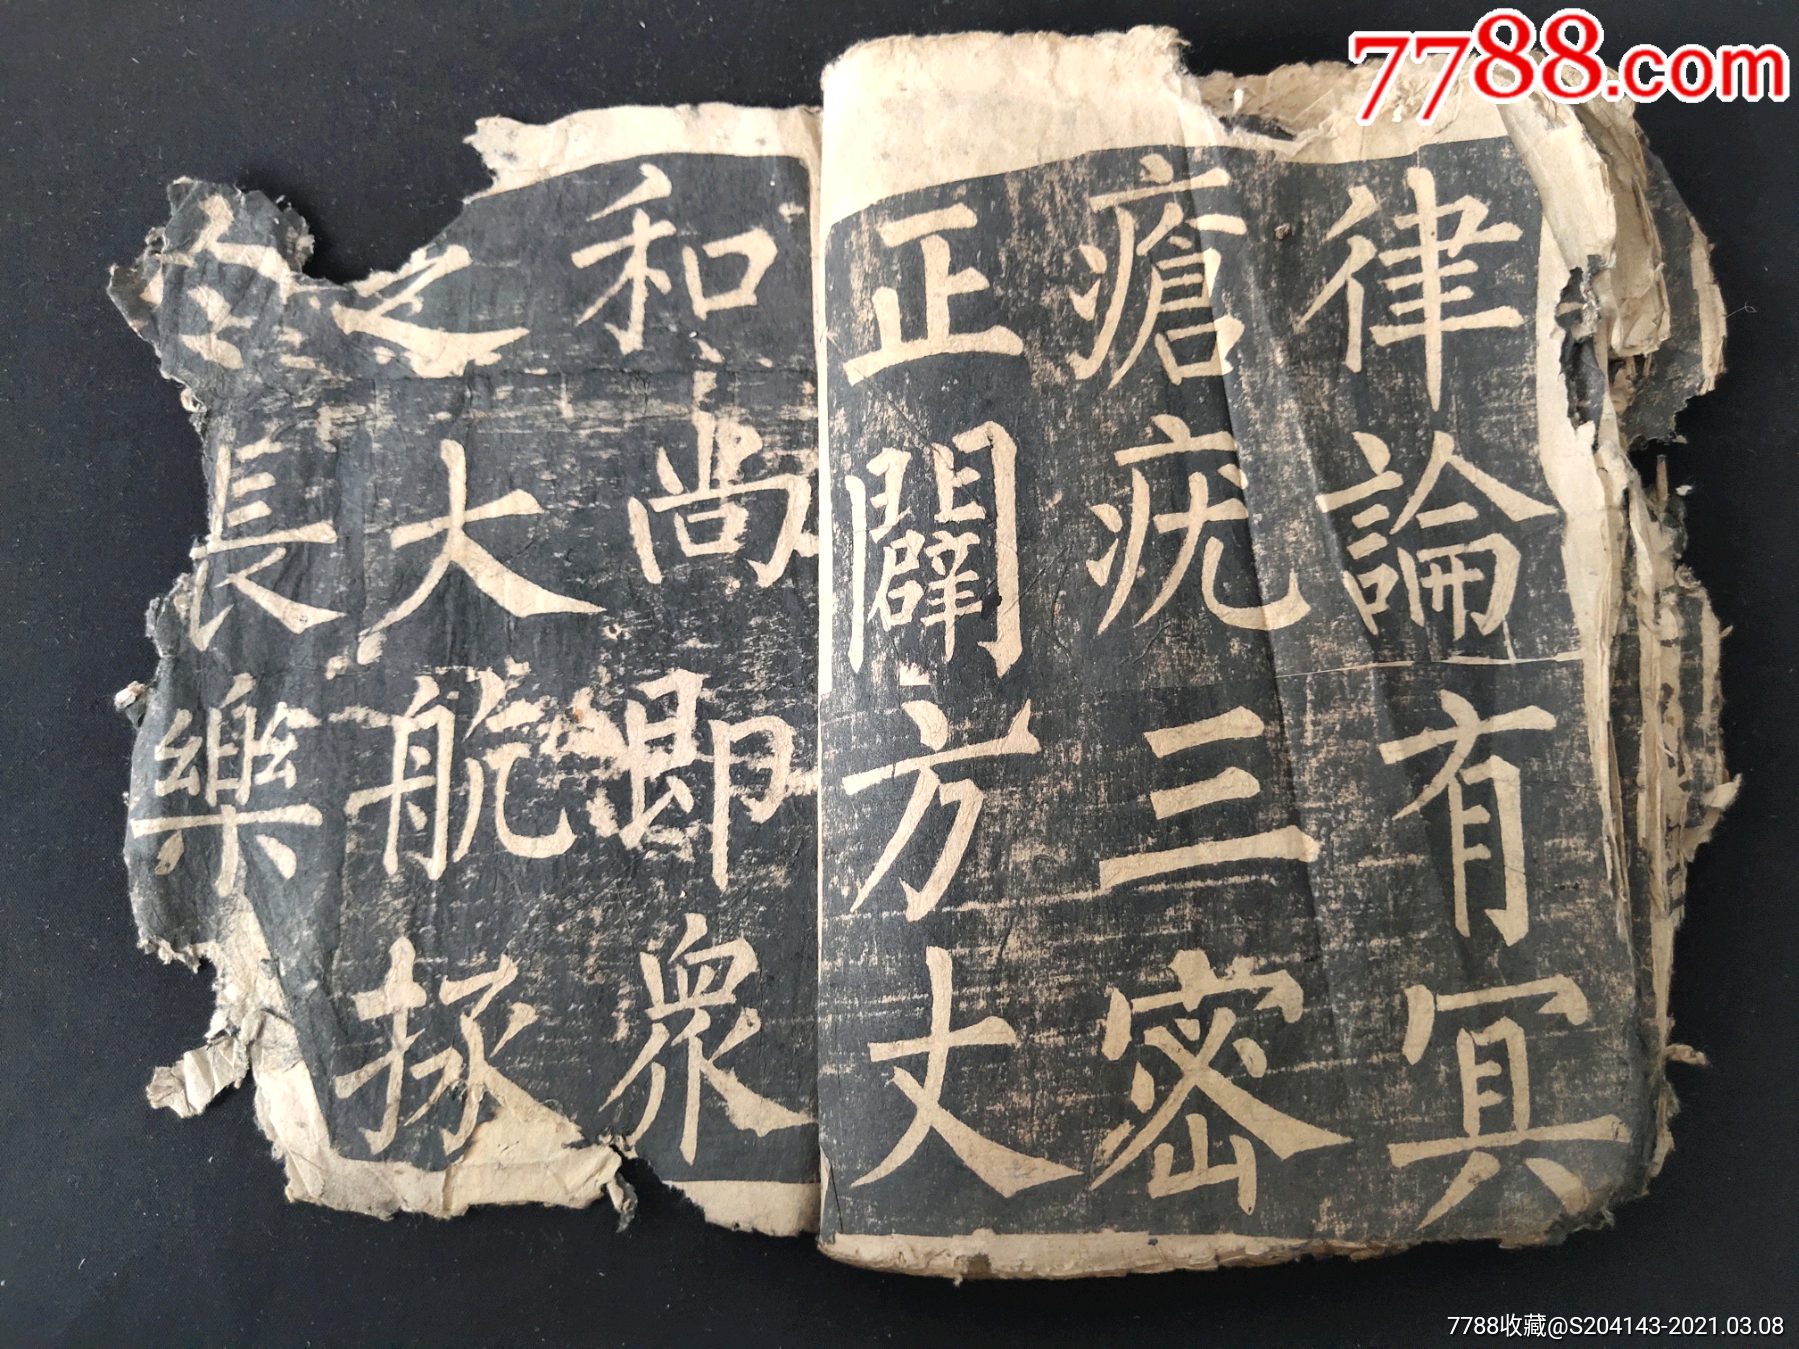 律論有冥
瘡疣三密
正闢方丈
和尚即衆
之大航拯
長樂
7788.com
7788收藏@S204143-2021.03.08